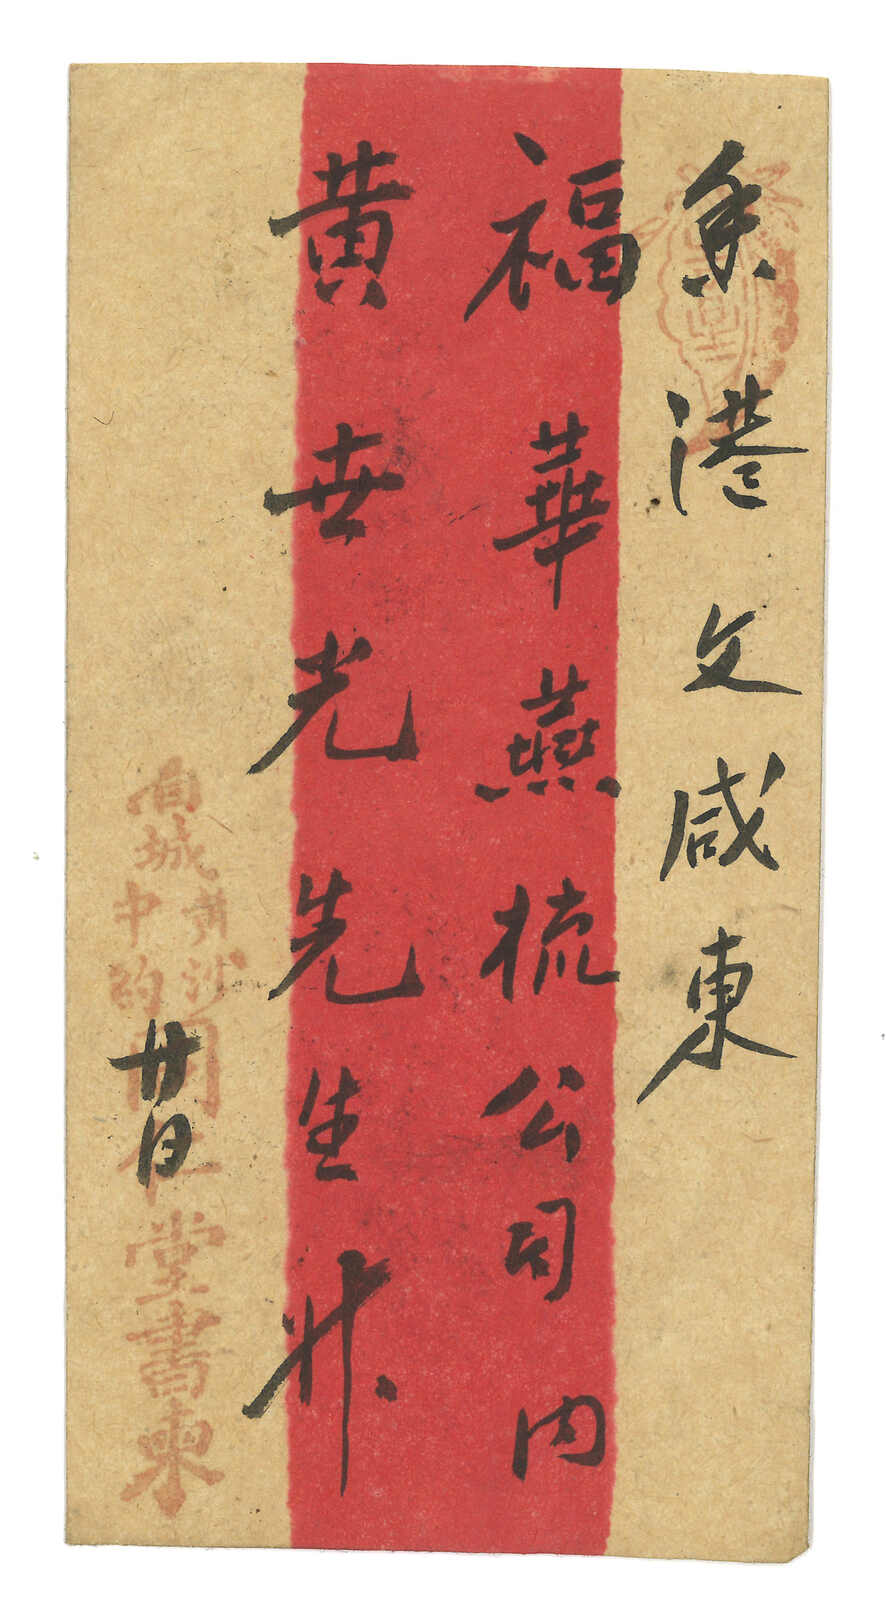 香港文咸東
福華燕梳公司内
黄世光先生升
廿日
西城
黄沙
中約
堂書柬